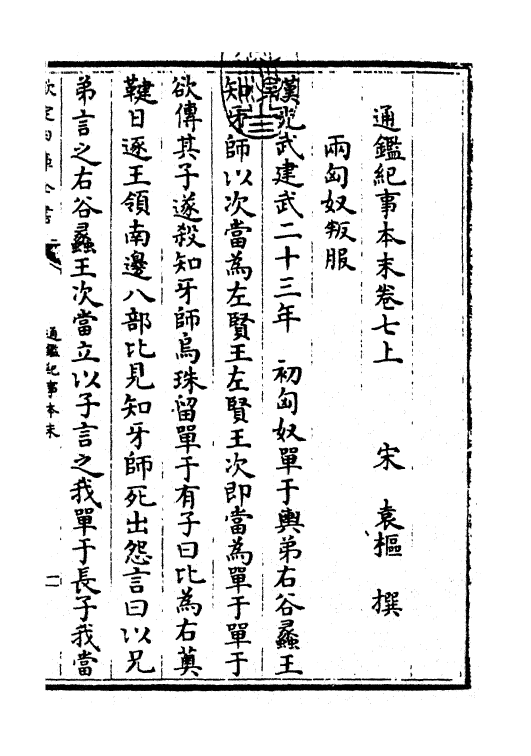 通鑑紀事本末卷七上 宋 袁樞 撰
兩匈奴叛服
漢光武建武二十三年 初匈奴單于輿弟右谷蠡王
知牙師以次當為左賢王左賢王次即當為單于單于
欲傳其子遂殺知牙師烏珠留單于有子曰比為右薁
鞬日逐王領南邊八部比見知牙師死出怨言曰以兄
弟言之右谷蠡王次當立以子言之我單于長子我當
欽定四庫全書
通鑑紀事本末